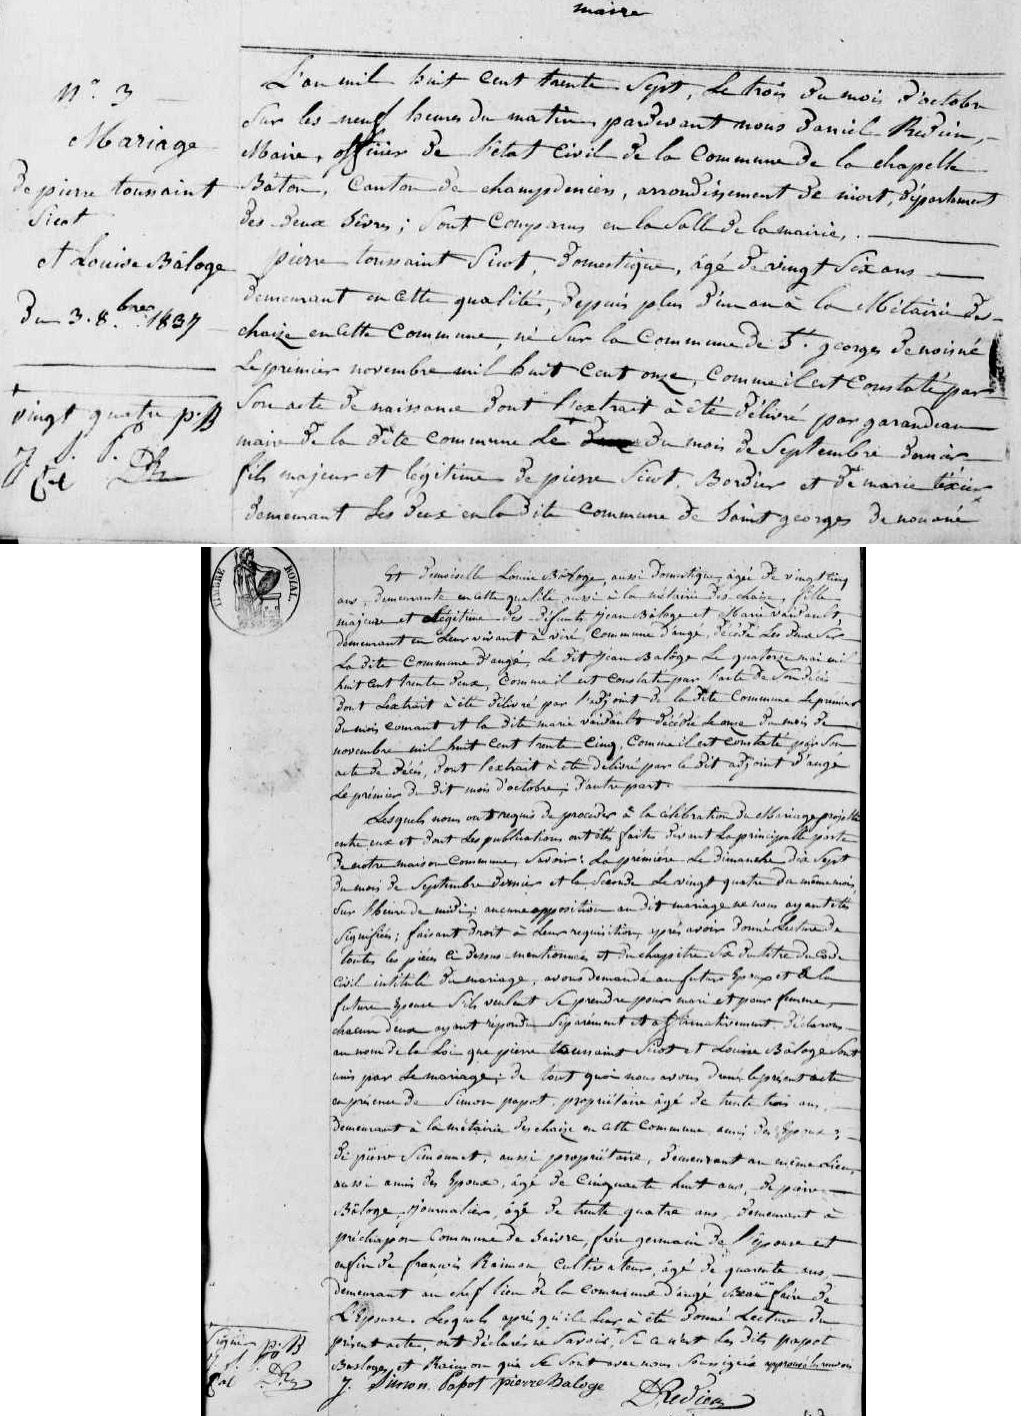 maire
N.° 3
Mariage
de pierre toussaint
Sicot
et Louise Bâloge
Du 3. 8.bres 1837
L'an mil huit cent trente Sept, Le trois du mois d'octobre
Sur les neuf heures du matin, pardevant nous Daniel Redien,
Maire, officier de l'état Civil de la Commune de la chapelle
Bâton, Canton de champdeniers, arrondissement de niort, département
des deux Sèvres; Sont Comparus en la Salle de la mairie,
pierre toussaint Sicot, Domestique, âgé de vingt Six ans
demeurant en Cette qualité, depuis plus d'un an à la Métairie des
chaize en Cette Commune, né Sur la Commune de St. georges de noisné
Le premier novembre mil huit Cent onze, Comme il est Constaté par
Son acte de naissance dont l'extrait à été délivré par garandeau
maire de la dite Commune Le du mois de Septembre dernier
fils majeur et légitime de pierre Sicot, Bordier et de marie téxier
demeurant Les deux en la dite Commune de Saint georges de noisné
+
vingt quatre p. B
J. S. P.
DR
TIMBRE ROYAL
Et demoiselle Louise Bâloge, aussi Domestique, âgée de vingt cinq
ans, Demeurante en Cette qualité aussi à la métairie des chaize, fille
majeure et légitime des défunts Jean Bâloge et Marie vaidault,
demeurant en Leur vivant à viré Commune d'augé, décédé Les deux Sur
La dite Commune d'augé, Le dit Jean Balôge Le quatorze mai mil
huit Cent trente deux, Comme il est Constaté par l'acte de Son décès
dont L'extrait à été délivré par l'adjoint de la dite Commune Le premier
du mois Courant et la dite marie vaidault décédée Le onze du mois de
novembre mil huit Cent trente Cinq, Comme il est Constaté par Son
acte de décès, dont l'extrait à été délivré par le dit adjoint d'augé
Le prémier du dit mois d'octobre; d'autre part.
Lesquels nous ont requis de proceder à la célébration du Mariage projetté
entre eux et dont Les publications ont étés faites devant La principalle porte
de notre maison Commune, Savoir: La prémière Le dimanche dix Sept
du mois de Septembre dernier et la Seconde Le vingt quatre du même mois,
Sur l'heure de midi; aucune opposition au dit mariage ne nous ayant étés
Signifiés; faisant droit à Leur requisition, après avoir donné Lecture de
toutes les pièces Ci dessus mentionnées et du chapitre Six du titre du Code
Civil intitulé du mariage, avons demandé au futur Epoux et à la
future Epouse S'ils veulent Se prendre pour mari et pour femme,
chacun d'eux ayant répondu Séparément et affirmativement, déclarons
au nom de la Loi que pierre toussaint Sicot et Louise Bâloge Sont
unis par Le mariage; de tout quoi nous avons dressé le présent acte
en présence de Simon papot, propriétaire âgé de trente trois ans,
demeurant à la métairie des chaize en Cette Commune, amis des Epoux;
de pierre Simonnet, aussi propriétaire, demeurant au même Lieu,
aussi amis des Epoux, âgé de Cinquante huit ans, de pierre
Bâloge, journalier, âgé de trente quatre ans, demeurant à
préchapon Commune de Saivre, frère germain de l'épouse et
enfin de françois Raimon, Cultivateur, âgé de quarante ans,
demeurant au chef Lieu de la Commune d'augé, Beau frère de
L'Epouse. Lesquels après qu'il Leur à été donné Lecture du
présent acte, ont déclaré ne Savoir, Si Ce n'est Les dits papot
Balloge, et Raimon qui Se Sont avec nous Soussignés
Signer p. B
DR
J. Simon Papot pierre Baloge
D. Redien